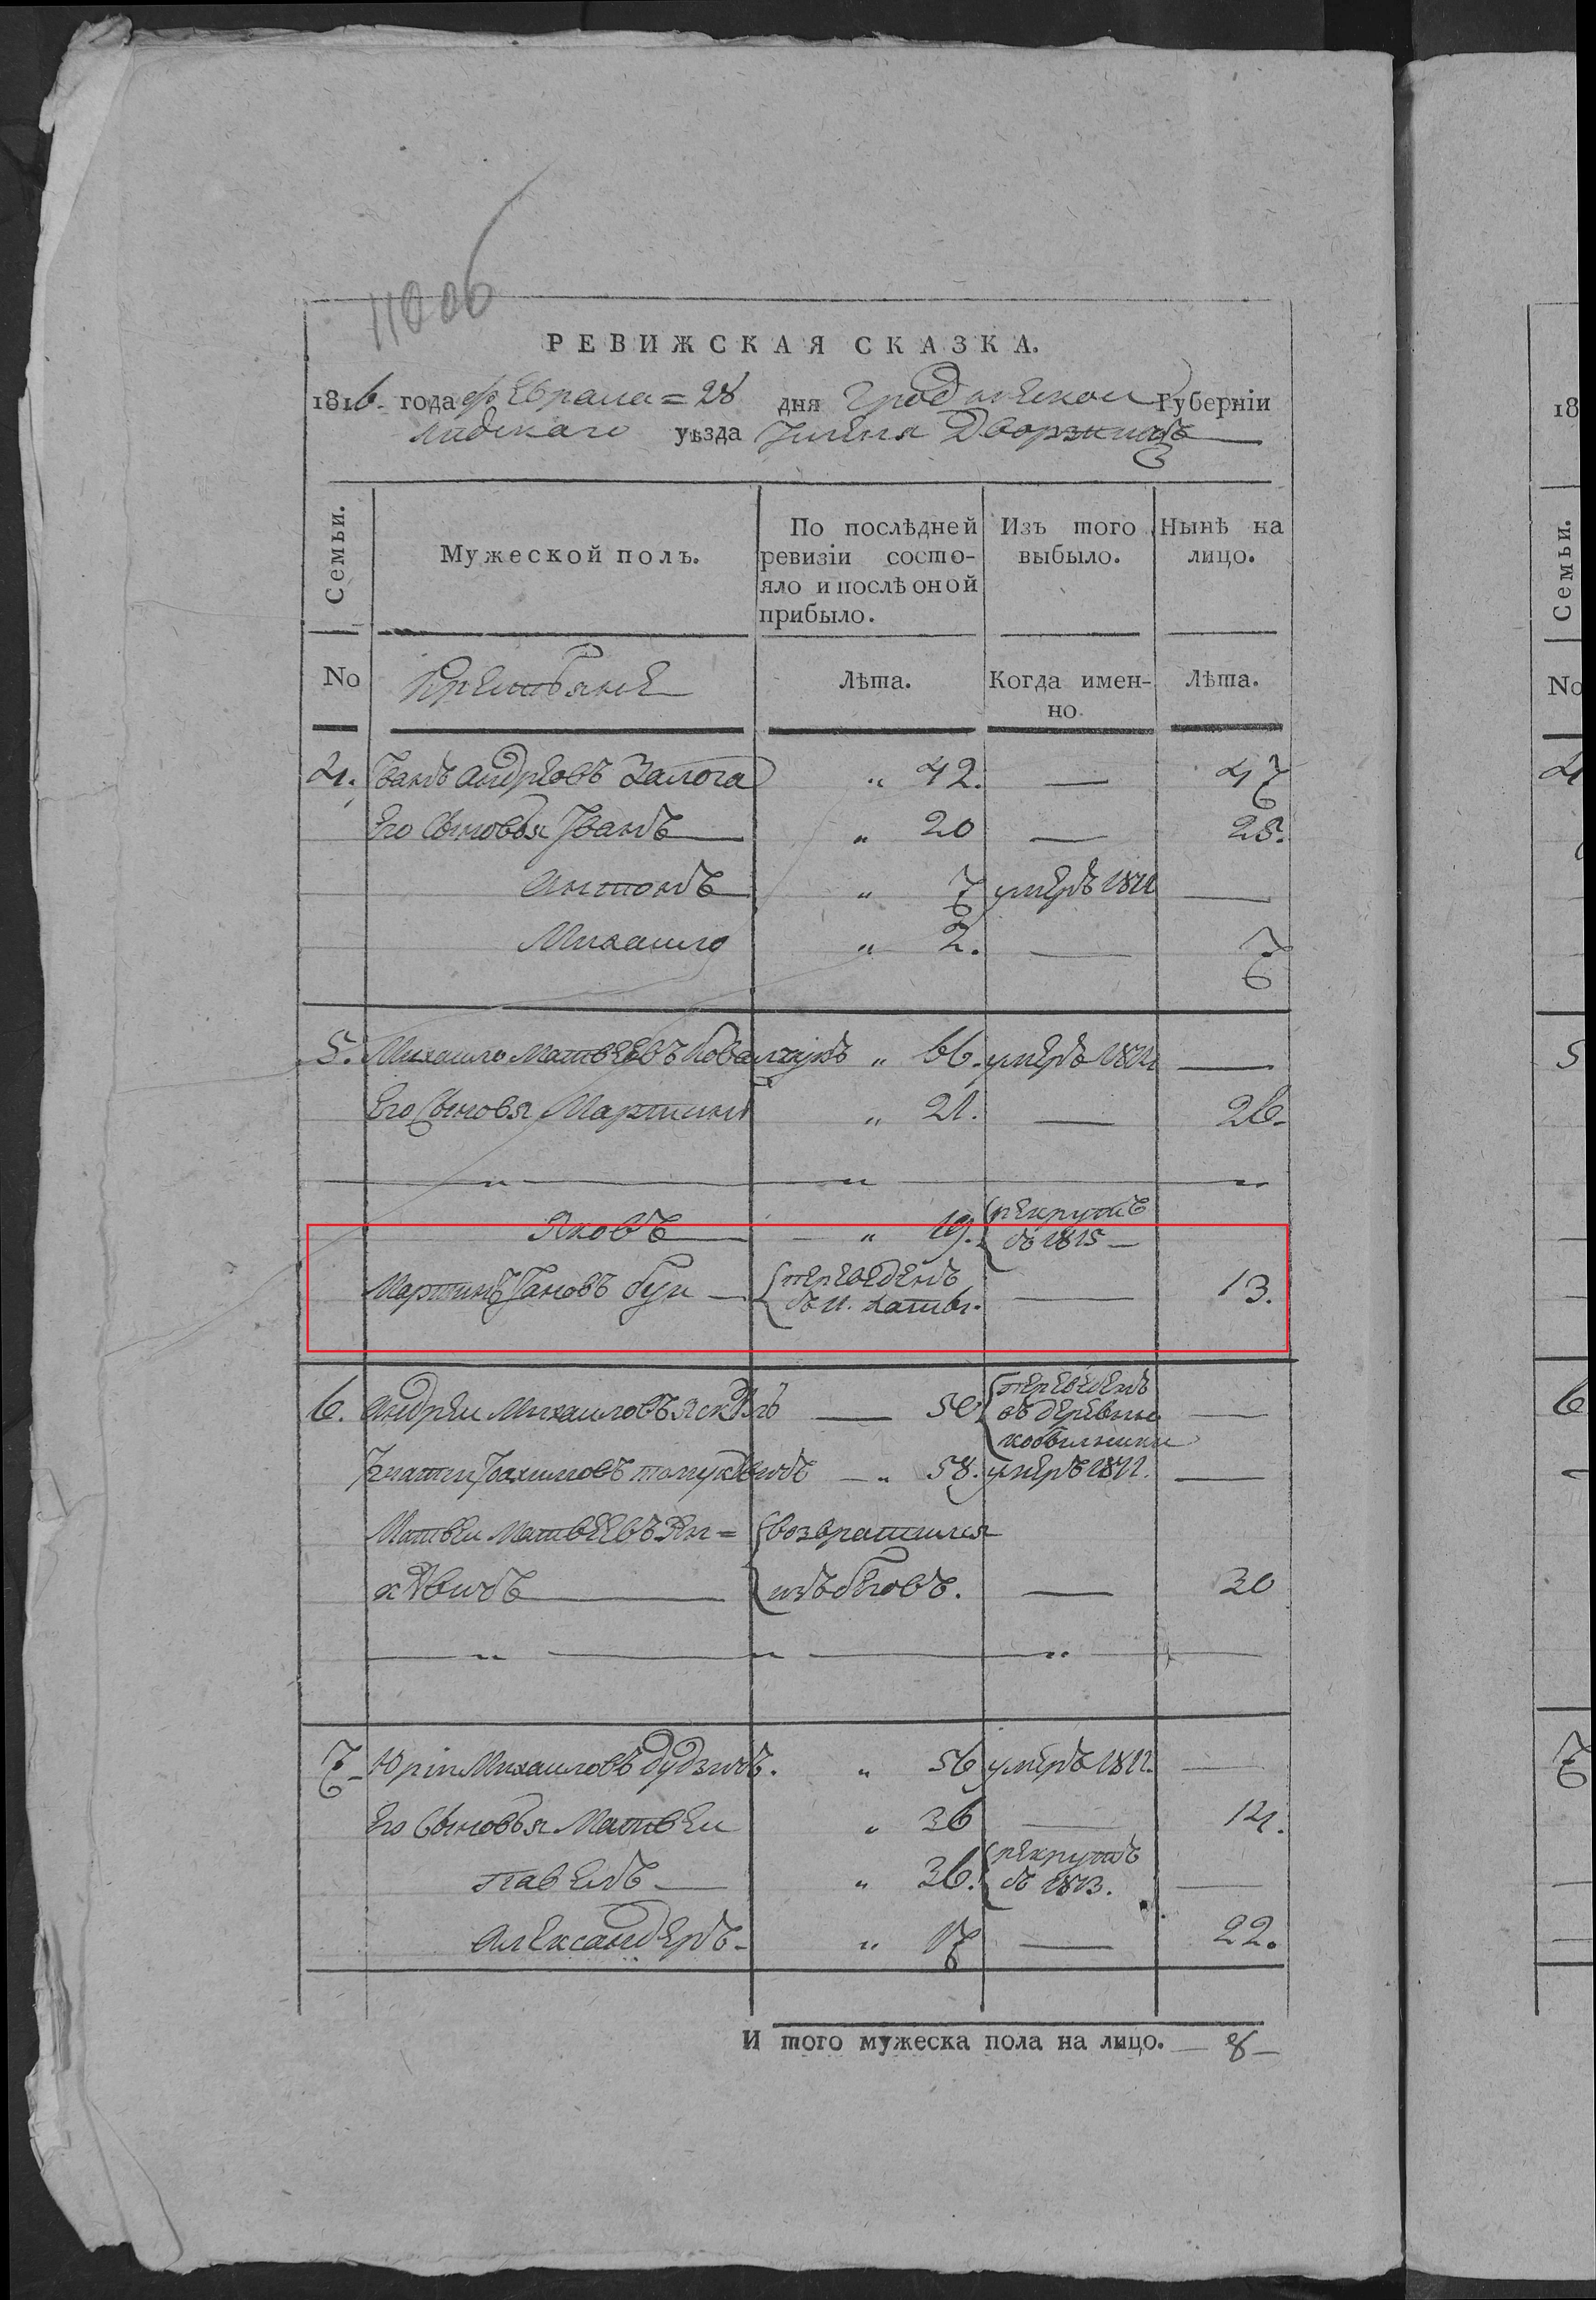 11006
РЕВИЖСКАЯ СКАЗКА.
1816 года февраля = 28 дня Гродненской Губернїи
Лидскаго уѣзда Имения
Семьи.
Мужеской полъ.
По послѣдней ревизїи состо-
яло и послѣ оной
прибыло.
Изъ того
выбыло.
Нынѣ на
лицо.
No
Крестьяне
Лѣта.
Когда имен-
но.
Лѣта.
4. Іванъ Андреовъ Залога „ 42. — 47
Его Сыновья Іванъ — „ 20 — 25.
Антонъ — „ 7 умеръ 1811 —
Михаило „ 2. — 7
5. Михаило Матвеевъ Ковальчукъ „ 66. умеръ 1814 —
Его Сыновя Мартинъ „ 21. — 26.
„ — „ — „
Яковъ — „ 19. рекрутъ
въ 1815 —
Мартинъ Іановъ буи — переведенъ — 13.
6. Андреи Михаиловъ — 50 переведенъ
въ деревню —
Игнатїи „ 58. умеръ 1811. —
Матвеи Матвеевъ Ян= возвратился
кевичъ — изъ беговъ. — 30
— „ — „ — „ —
7 Юріи Михаиловъ будзичъ. „ 56 умеръ 1811. —
Его Сыновья Матвеи „ 36 — 14.
Павелъ — „ 36. рекрутъ
въ 1813. —
Александеръ — „ 17 — 22.
И того мужеска пола на лицо. — 8 —
18
Семьи.
No
4
5
6
7